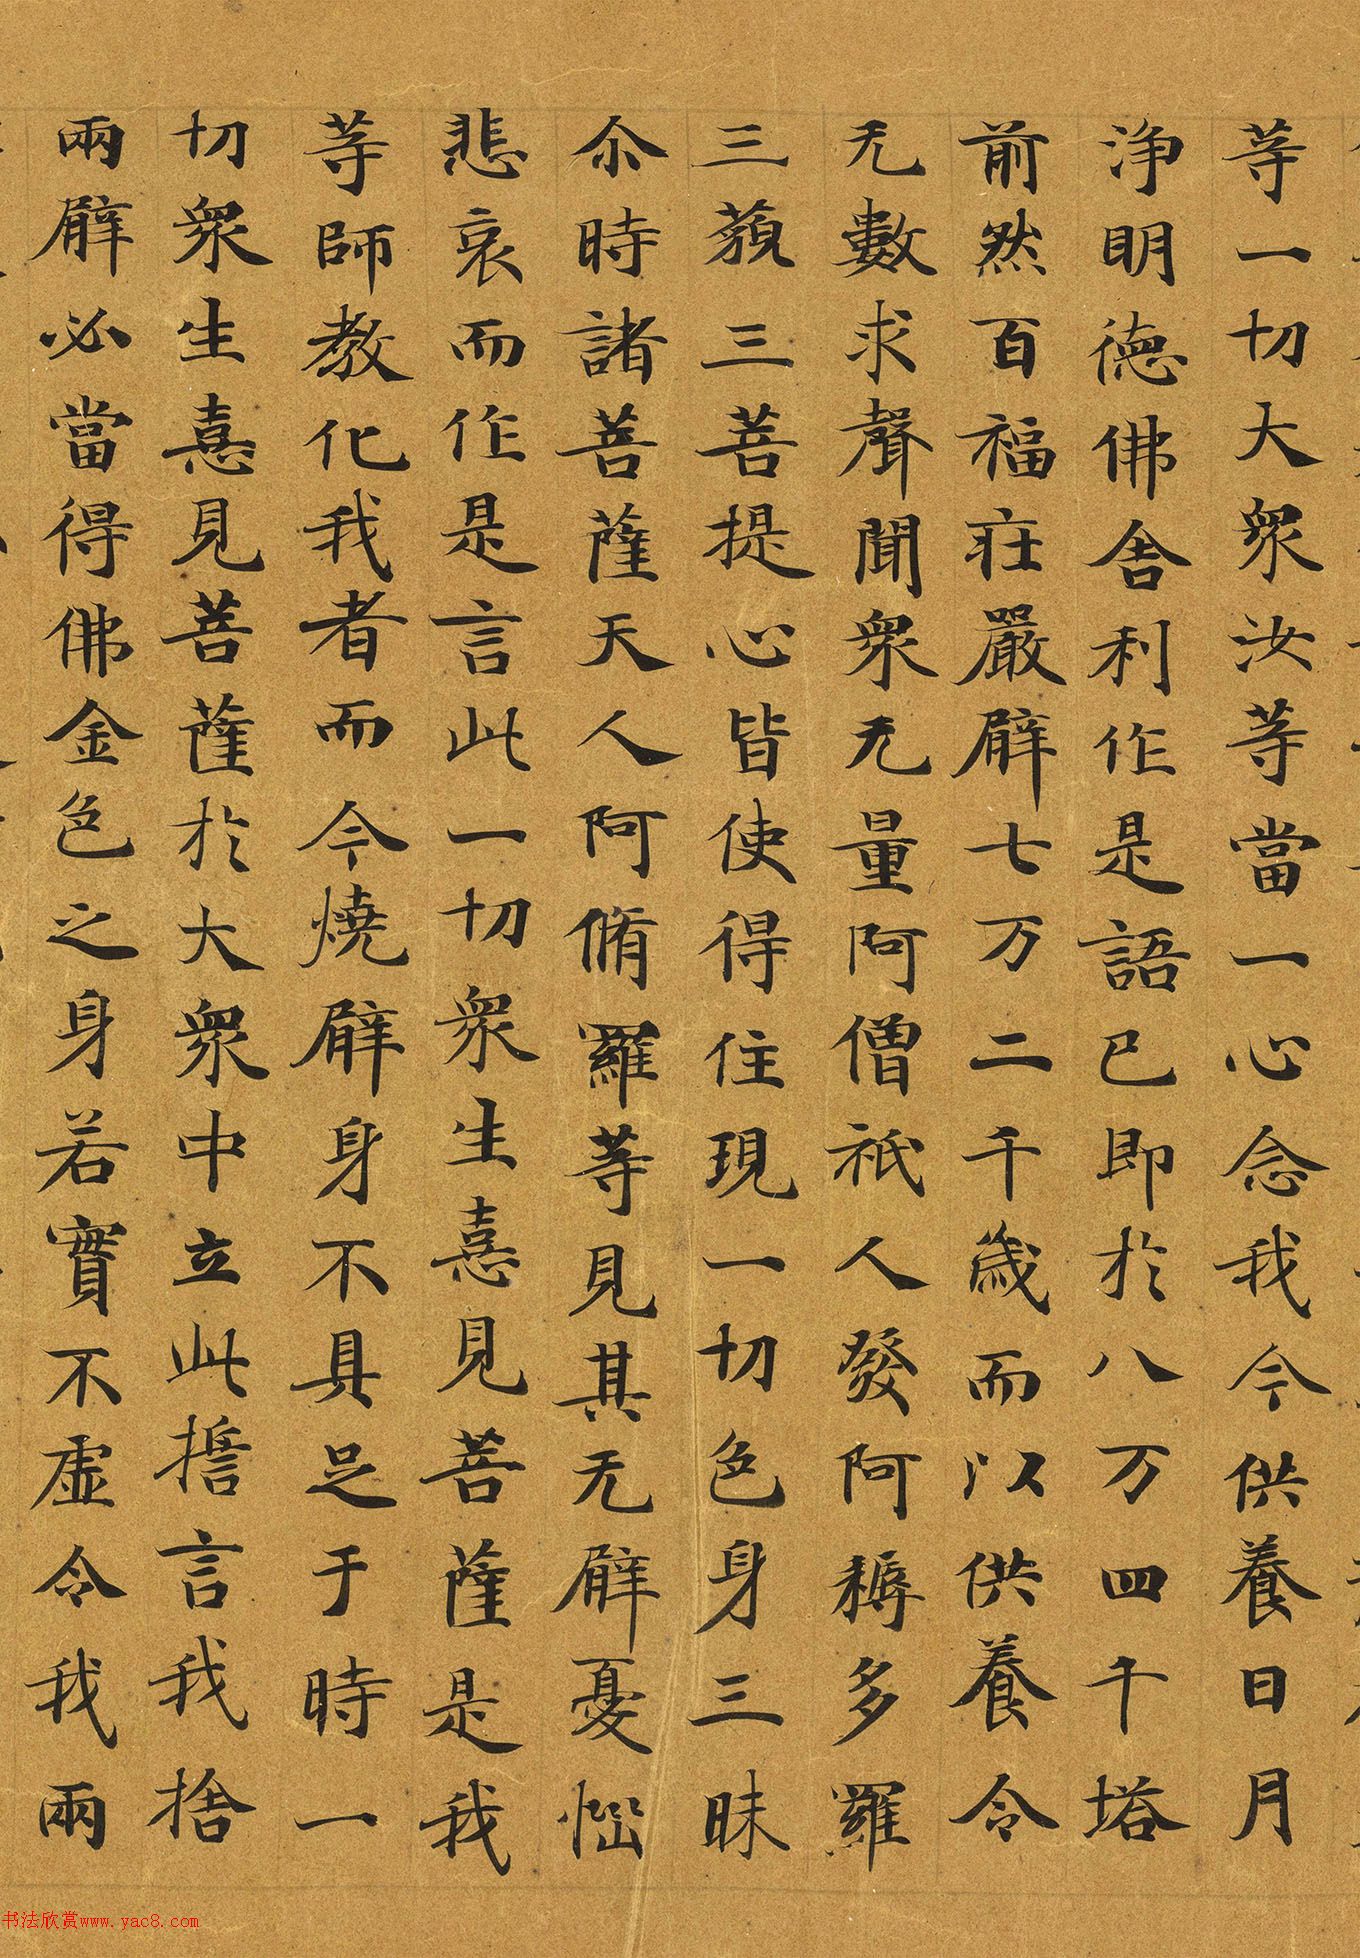 等一切大衆汝等當一心念我今供養日月
淨明德佛舍利作是語已即於八万四千塔
前然百福莊嚴臂七万二千歲而以供養令
无數求聲聞衆无量阿僧祇人發阿耨多羅
三藐三菩提心皆使得住現一切色身三昧
尒時諸菩薩天人阿脩羅等見其无臂憂惱
悲哀而作是言此一切衆生憙見菩薩是我
等師教化我者而今燒臂身不具足于時一
切衆生憙見菩薩於大衆中立此誓言我捨
兩臂必當得佛金色之身若實不虛令我兩
书法欣赏www.yac8.com